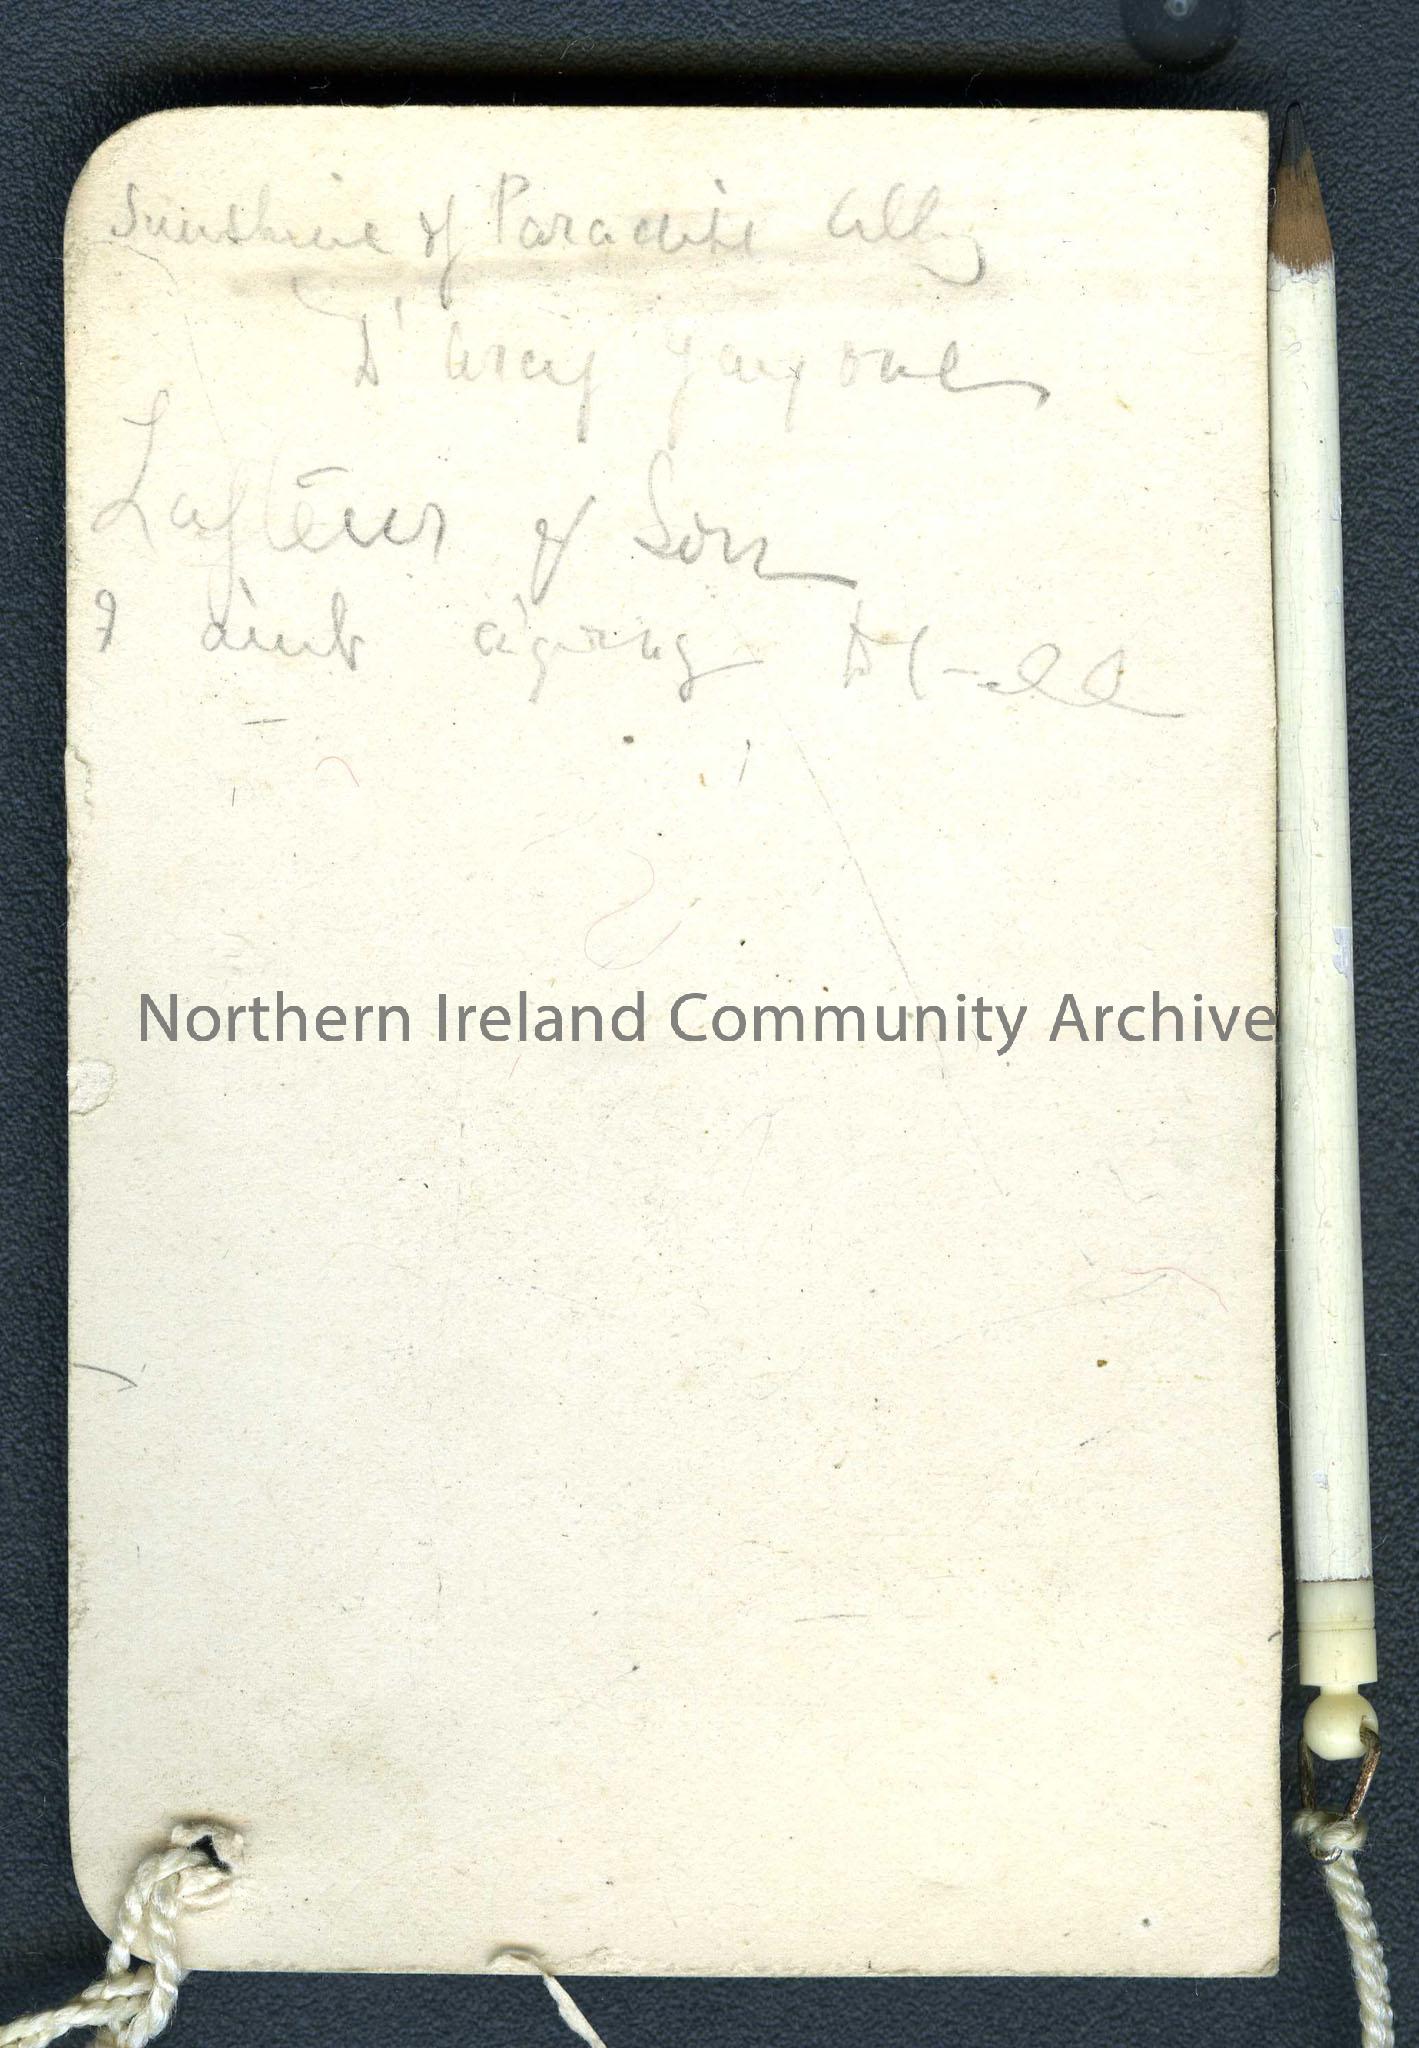 Sunshine of Paradise Alley
D'Arcy
of Son
I aint a'going
Northern Ireland Community Archive